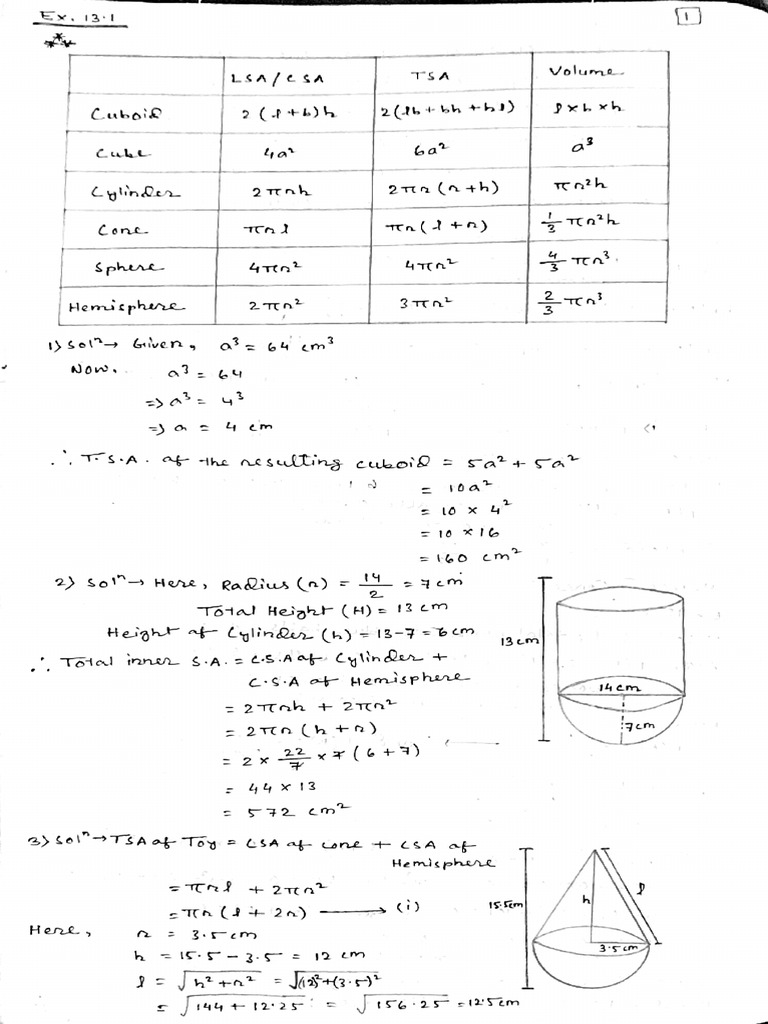 Ex. 13.1
1
LSA/CSA TSA Volume
Cuboid 2(l+b)h 2(lb+bh+hl) l×b×h
Cube 4a² 6a² a³
Cylinder 2πrh 2πr(r+h) πr²h
Cone πrl πr(l+r) 1/3 πr²h
Sphere 4πr² 4πr² 4/3 πr³
Hemisphere 2πr² 3πr² 2/3 πr³
1) Solⁿ→ Given, a³ = 64 cm³
Now, a³ = 64
=> a³ = 4³
=> a = 4 cm
∴ T.S.A. of the resulting cuboid = 5a² + 5a²
= 10a²
= 10 × 4²
= 10 × 16
= 160 cm²
2) Solⁿ→ Here, Radius (r) = 14/2 = 7cm
Total Height (H) = 13 cm
Height of Cylinder (h) = 13-7 = 6cm
∴ Total inner S.A. = C.S.A of Cylinder +
C.S.A of Hemisphere
= 2πrh + 2πr²
= 2πr (h+r)
= 2 × 22/7 × 7 (6+7)
= 44 × 13
= 572 cm²
13cm
14cm
7cm
3) Solⁿ→ TSA of Toy = CSA of cone + CSA of
Hemisphere
= πrl + 2πr²
= πr (l + 2r) → (i)
Here, r = 3.5cm
h = 15.5 - 3.5 = 12 cm
l = √h²+r² = √(12)²+(3.5)²
= √144+12.25 = √156.25 = 12.5cm
15.5cm
h
l
3.5cm